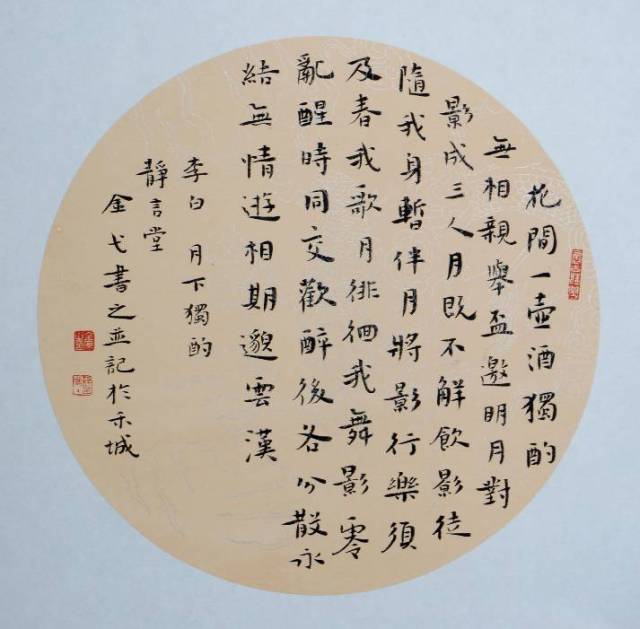 花間一壺酒獨酌
無相親舉盃邀明月對
影成三人月既不解飲影徒
隨我身暫伴月將影行樂須
及春我歌月徘徊我舞影零
亂醒時同交歡醉後各分散永
結無情遊相期邈雲漢
李白 月下獨酌
靜言堂
金戈書之並記於禾城